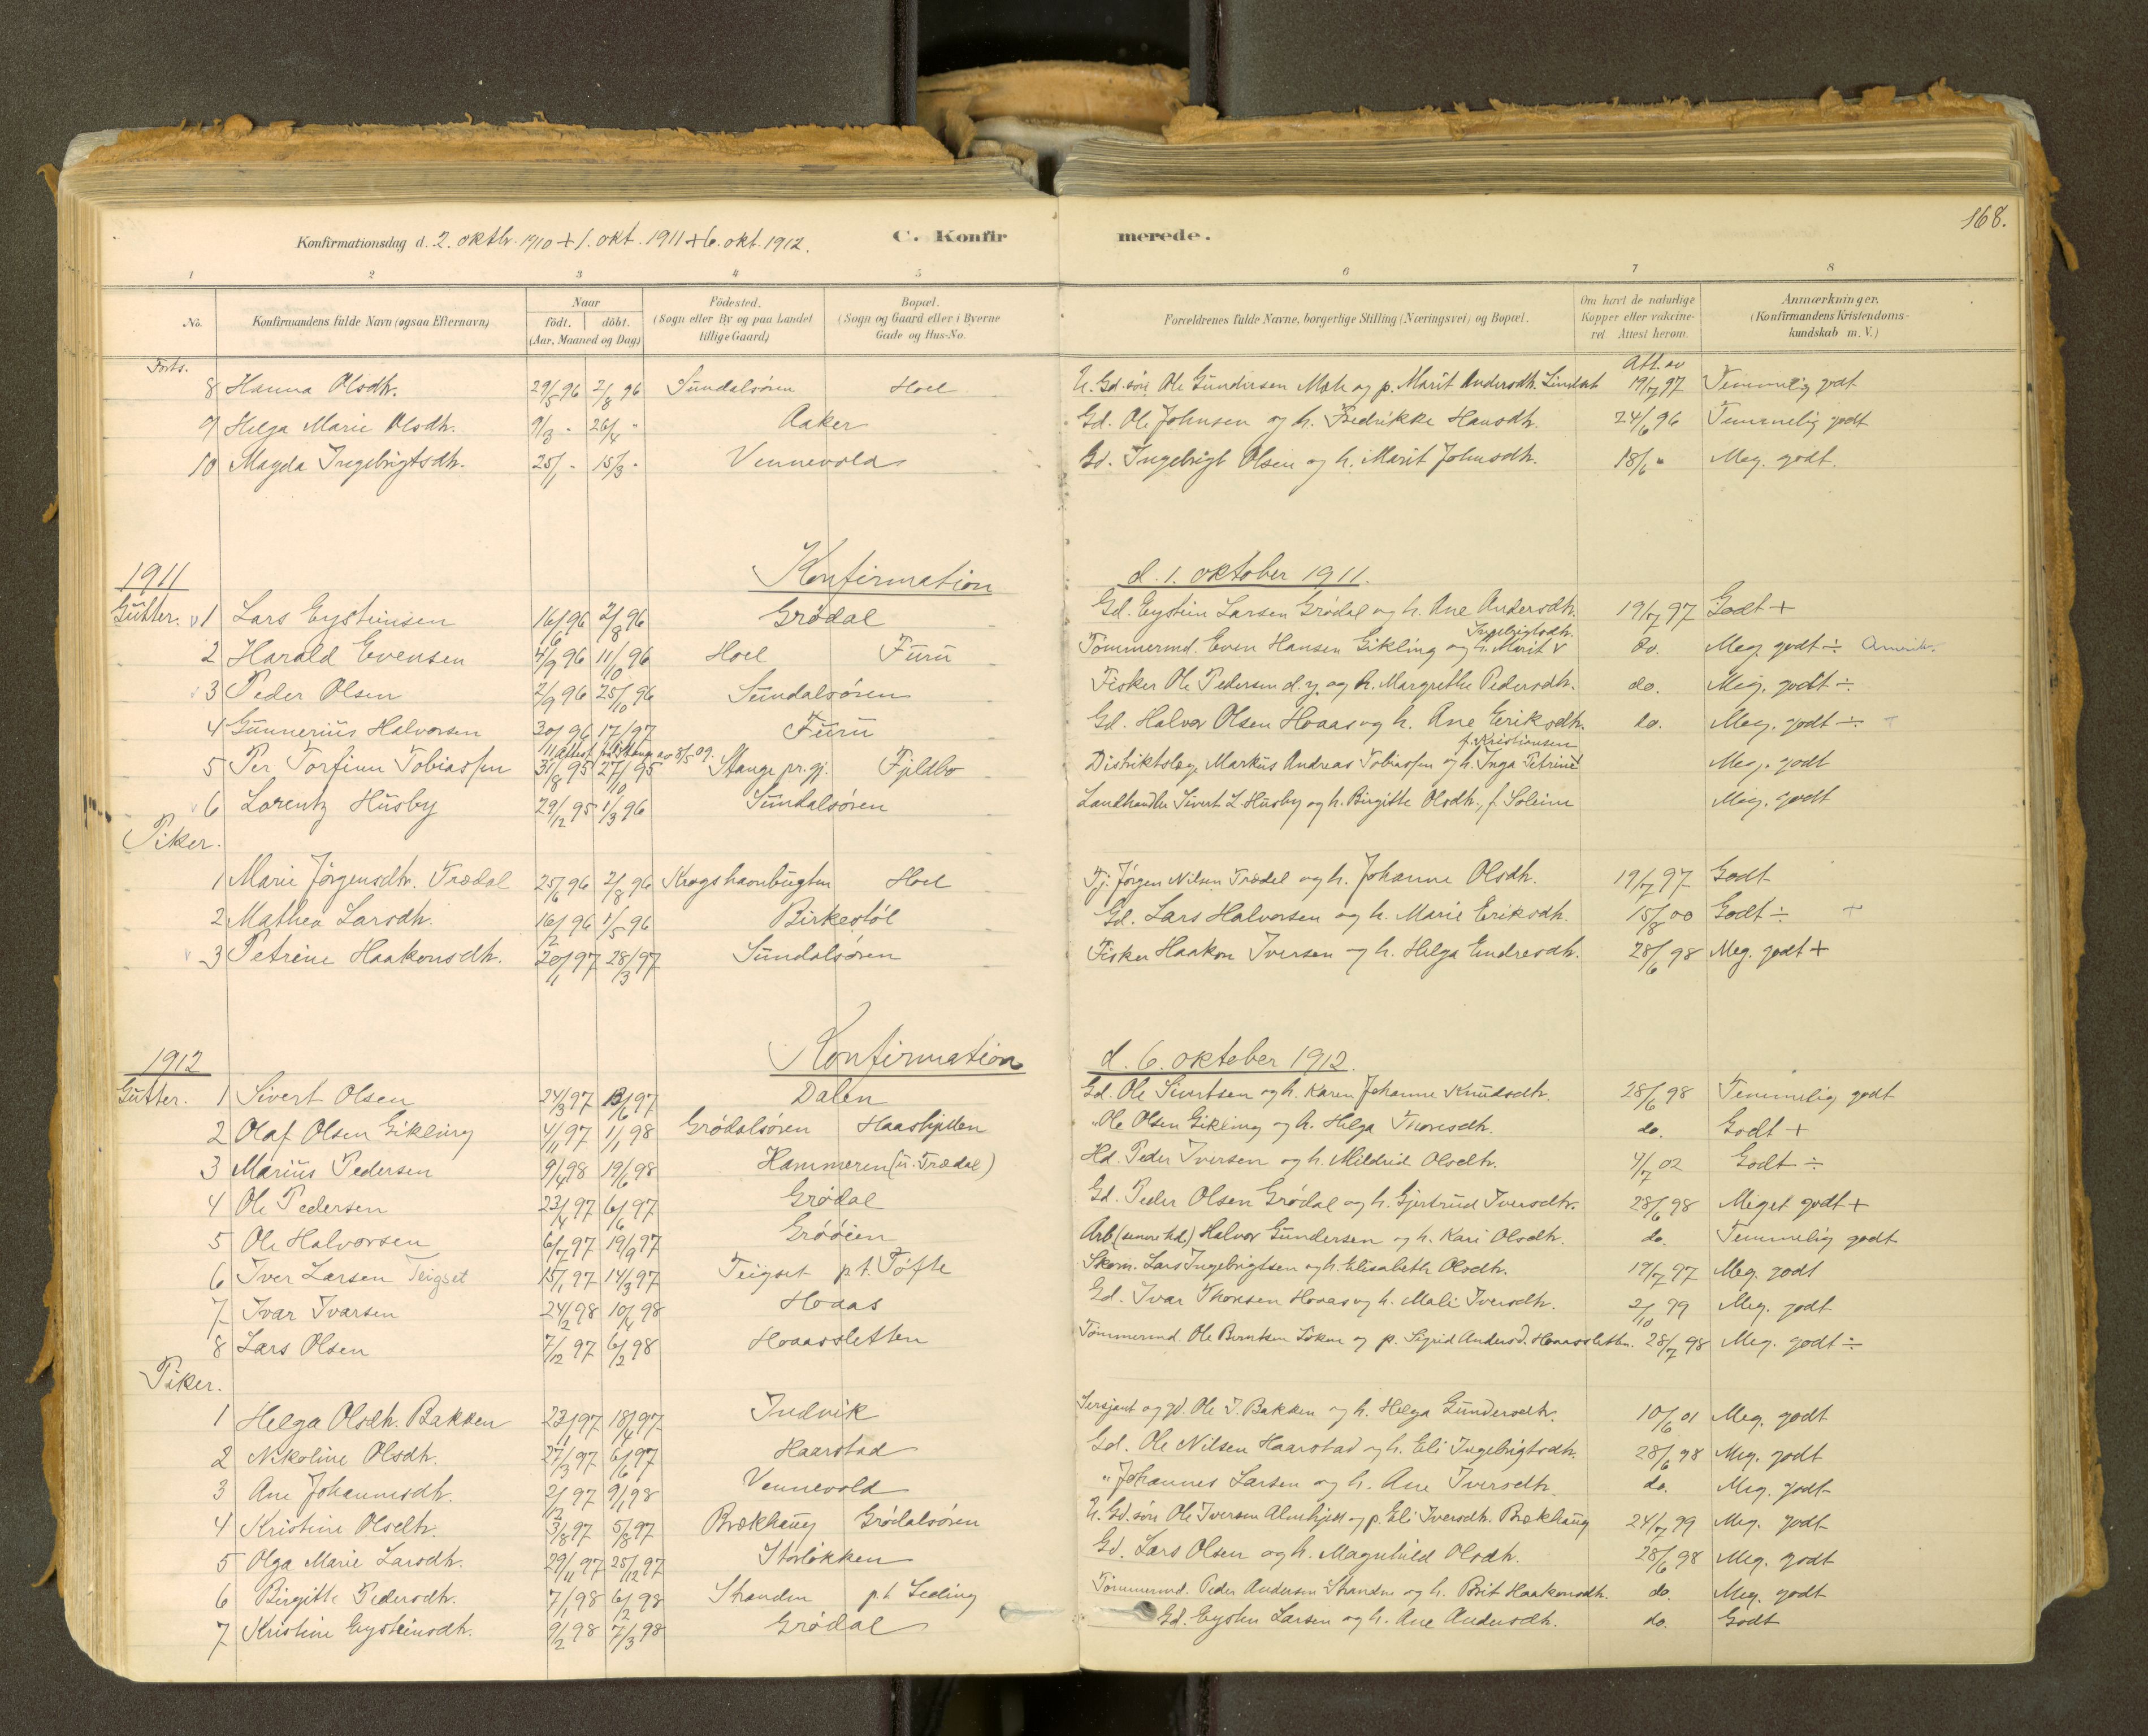 168.
Konfirmationsdag d. 2. oktbr. 1910 + 1. okt. 1911 + 6. okt. 1912. C. Konfir merede.
1 2 3 4 5 6 7 8
No. Konfirmandens fulde Navn (ogsaa Efternavn) Naar födt. döbt. (Aar, Maaned og Dag) Födested. (Sogn eller By og paa Landet tillige Gaard) Bopæl. (Sogn og Gaard eller i Byerne Gade og Hus-No. Forældrenes fulde Navne, borgerlige Stilling (Næringsvei) og Bopæl. Om havt de naturlige Kopper eller vakcineret Attest herom. Anmærkninger. (Konfirmandens Kristendomskundskab m. V.)
Forts. Att. av
8 Hanna Olsdtr. 29/5 96 2/8 96 Sundalsören Hoel U. Gd.sön Ole Gundersen Mæle og p. Marit Andersdtr. 19/7 97 Temmelig godt
9 Helga Marie Olsdtr. 9/3 " 26/4 " Aaker Gd. Ole Johnsen og h. Fredrikke Hansdtr. 24/6 96 Temmelig godt
10 Magda Ingebrigtsdtr. 25/1 " 15/3 " Vennevold Gd. Ingebrigt Olsen og h. Marit Johnsdtr. 18/6 " Meg. godt.
1911 Konfirmation d. 1. oktober 1911.
Gutter. v 1 Lars Eysteinsen 16/6 96 2/8 96 Grødal Gd. Eystein Larsen Grødal og h. Ane Andersdtr. 19/7 97 Godt +
Ingebrigtsdtr.
2 Harald Evensen 4/9 96 11/10 96 Hoel Furu Tømmermd. Even Hansen Gikling og h. Marit v do. Meg. godt ÷ Amerik.
v 3 Peder Olsen 2/9 96 25/10 96 Sundalsören Fisker Ole Pedersen d.y. og h. Margrethe Pedersdtr. do. Meg. godt ÷
4 Gunnerius Halvorsen 30/11 96 17/1 97 Furu Gd. Halvor Olsen Hoaas og h. Ane Eriksdtr. do. Meg. godt ÷ +
f. Kristiansen
5 Per Torfinn Tobiassen 31/8 95 27/10 95 Stange pr.gj. Fjeldbo Distriktslæge Markus Andreas Tobiassen og h. Inga Petrine Meg. godt
v 6 Lorentz Husby 29/12 95 1/3 96 Sundalsören Landhandler Sivert L. Husby og h. Birgitte Olsdtr., f. Soleim Meg. godt
Piker.
1 Marie Jörgensdtr. Trædal 25/6 96 2/8 96 Krogshavnbugten Hoel Tj. Jörgen Nilsen Trædal og h. Johanne Olsdtr. 19/7 97 Godt
2 Mathea Larsdtr. 16/2 96 1/5 96 Birkestöl Gd. Lars Halvorsen og h. Marie Eriksdtr. 15/8 00 Godt ÷ +
v 3 Petrine Haakonsdtr. 20/1 97 28/3 97 Sundalsören Fisker Haakon Iversen og h. Helga Endresdtr. 28/6 98 Meg. godt +
1912 Konfirmation d. 6. oktober 1912.
Gutter. 1 Sivert Olsen 24/3 97 13/6 97 Dalen Gd. Ole Sivertsen og h. Karen Johanne Knudsdtr. 28/6 98 Temmelig godt
2 Olaf Olsen Gikling 4/11 97 1/1 98 Grødalsören Haashjellen " Ole Olsen Gikling og h. Helga Thoresdtr. do. Godt +
3 Marius Pedersen 9/4 98 19/6 98 Hammeren (u. Trædal) Hd. Peder Iversen og h. Mildrid Olsdtr. 4/7 02 Godt ÷
4 Ole Pedersen 23/4 97 6/6 97 Grødal Gd. Peder Olsen Grødal og h. Gjertrud Iversdtr. 28/6 98 Meget godt +
5 Ole Halvorsen 6/7 97 19/9 97 Gröóien Arb. Halvor Gundersen og h. Kari Olsdtr. do. Temmelig godt
6 Iver Larsen Teigset 15/1 97 14/3 97 Teigset p.t. Töfte Skom. Lars Ingebrigtsen og h. Elisabeth Olsdtr. 19/7 97 Meg. godt
7 Ivar Ivarsen 24/2 98 10/4 98 Hoaas Gd. Ivar Thoresen Hoaas og h. Mali Iversdtr. 2/10 99 Meg. godt
8 Lars Olsen 7/12 97 6/2 98 Hoaassletten Tömmermd. Ole Berntsen Löken og p. Sigrid Andersd. Hoaassletten. 28/7 98 Meg. godt ÷
Piker.
1 Helga Olsdtr. Bakken 23/1 97 18/4 97 Indvik Sersjant og gd. Ole I. Bakken og h. Helga Gundersdtr. 10/6 01 Meg. godt
2 Nikoline Olsdtr. 27/3 97 6/6 97 Haarstad Gd. Ole Nilsen Haarstad og h. Eli Ingebrigtsdtr. 28/6 98 Meg. godt
3 Ane Johannesdtr. 2/12 97 9/1 98 Vennevold " Johannes Larsen og h. Ane Iversdtr. do. Meg. godt
4 Kristine Olsdtr. 3/8 97 5/8 97 Brækhaug Grödalsören U. Gd.sön Ole Iversen Almskjell og p. Eli Iversdtr. Brækhaug 24/7 99 Meg. godt
5 Olga Marie Larsdtr. 29/11 97 25/12 97 Storløkken Gd. Lars Olsen og h. Magnhild Olsdtr. 28/6 98 Meg. godt
6 Birgitte Pedersdtr. 7/1 98 6/2 98 Stranden p.t. Leding Tömmermd. Peder Andersen Stranden og h. Brit Haakonsdtr. do. Meg. godt
7 Kristine Eysteinsdtr. 9/2 98 7/3 98 Grödal Gd. Eystein Larsen og h. Ane Andersdtr. do. Godt